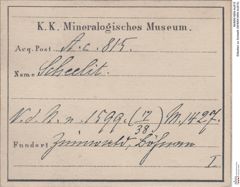 K. K. Mineralogisches Museum.
Acq. Post A. c. 815.
Name Scheelit.
V. d. N. n. 1599. (17/38.) M. 1427.
Fundort Zinnwald, Böhmen
I